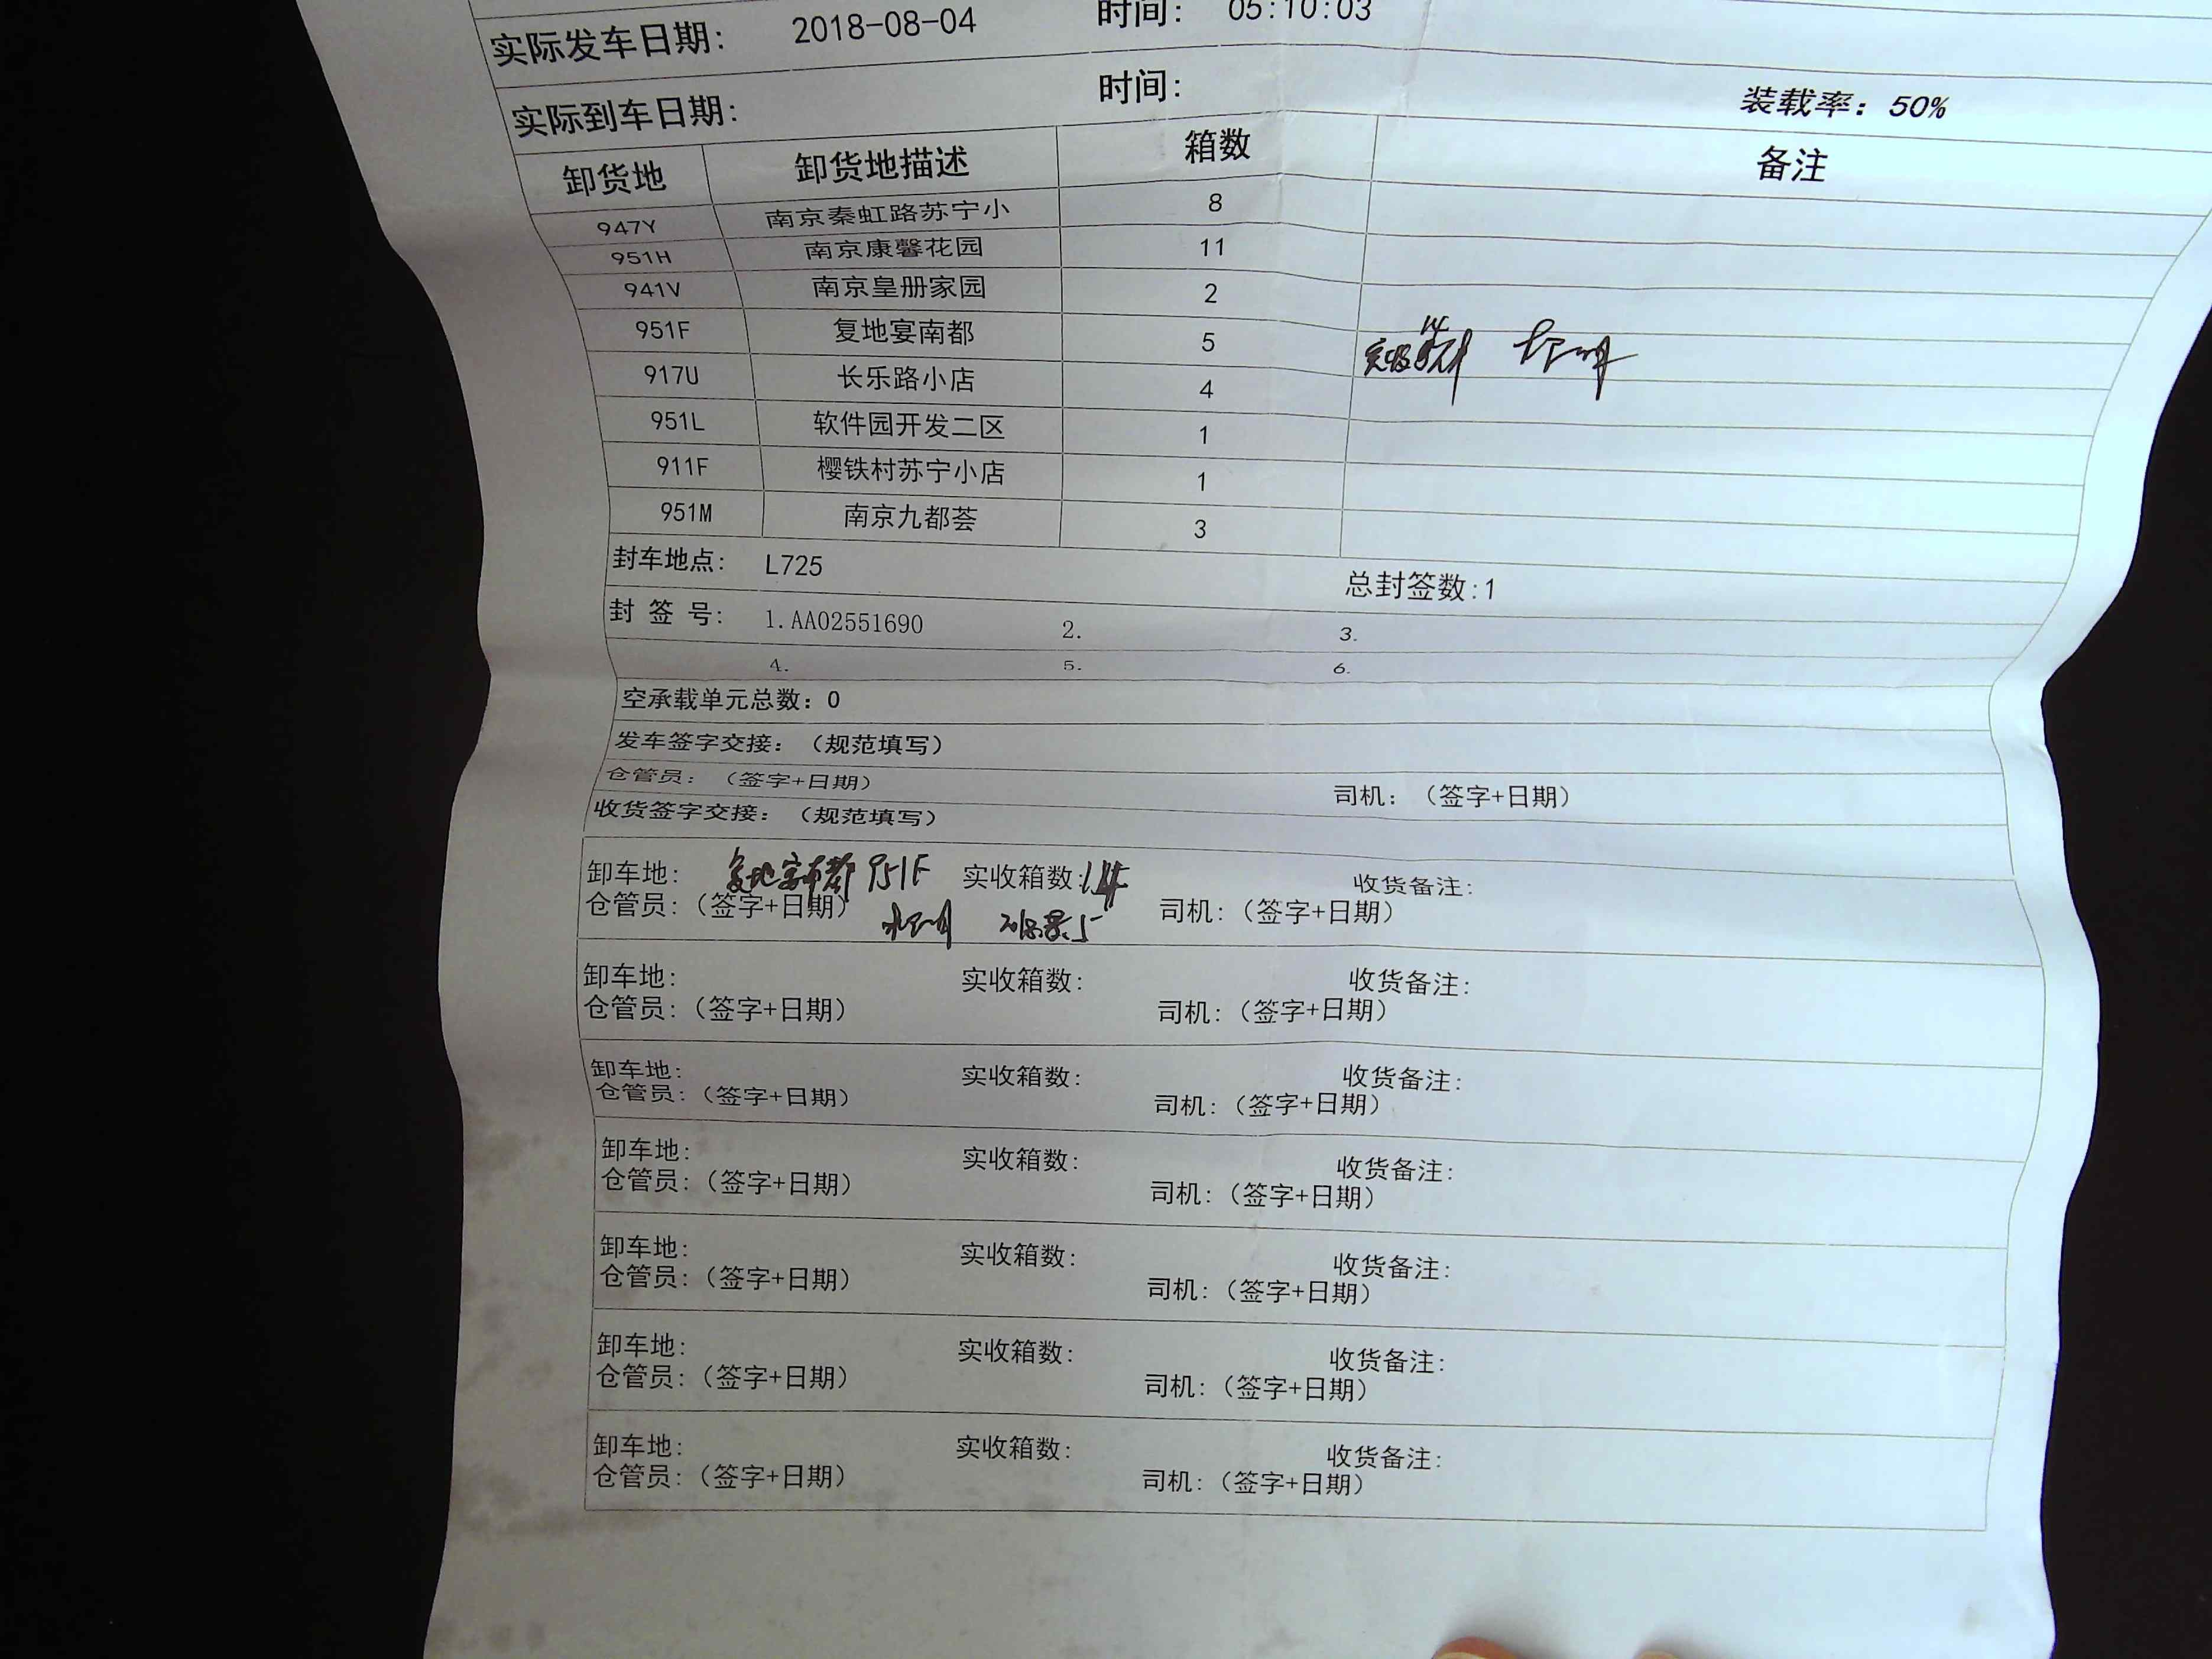 实际发车日期: 2018-08-04 时间: 05:10:03
实际到车日期: 时间:
装载率: 50%
卸货地 卸货地描述 箱数 备注
947Y 南京秦虹路苏宁小 8
951H 南京康馨花园 11
941V 南京皇册家园 2
951F 复地宴南都 5 实收
917U 长乐路小店 4
951L 软件园开发二区 1
911F 樱铁村苏宁小店 1
951M 南京九都荟 3
封车地点: L725 总封签数:1
封 签 号: 1.AA02551690 2. 3.
4. 5. 6.
空承载单元总数: 0
发车签字交接: (规范填写)
仓管员: (签字+日期) 司机: (签字+日期)
收货签字交接: (规范填写)
卸车地: 复地宴南都 951F 实收箱数: 收货备注:
仓管员:(签字+日期) 司机:(签字+日期)
卸车地: 实收箱数: 收货备注:
仓管员:(签字+日期) 司机:(签字+日期)
卸车地: 实收箱数: 收货备注:
仓管员:(签字+日期) 司机:(签字+日期)
卸车地: 实收箱数: 收货备注:
仓管员:(签字+日期) 司机:(签字+日期)
卸车地: 实收箱数: 收货备注:
仓管员:(签字+日期) 司机:(签字+日期)
卸车地: 实收箱数: 收货备注:
仓管员:(签字+日期) 司机:(签字+日期)
卸车地: 实收箱数: 收货备注:
仓管员:(签字+日期) 司机:(签字+日期)